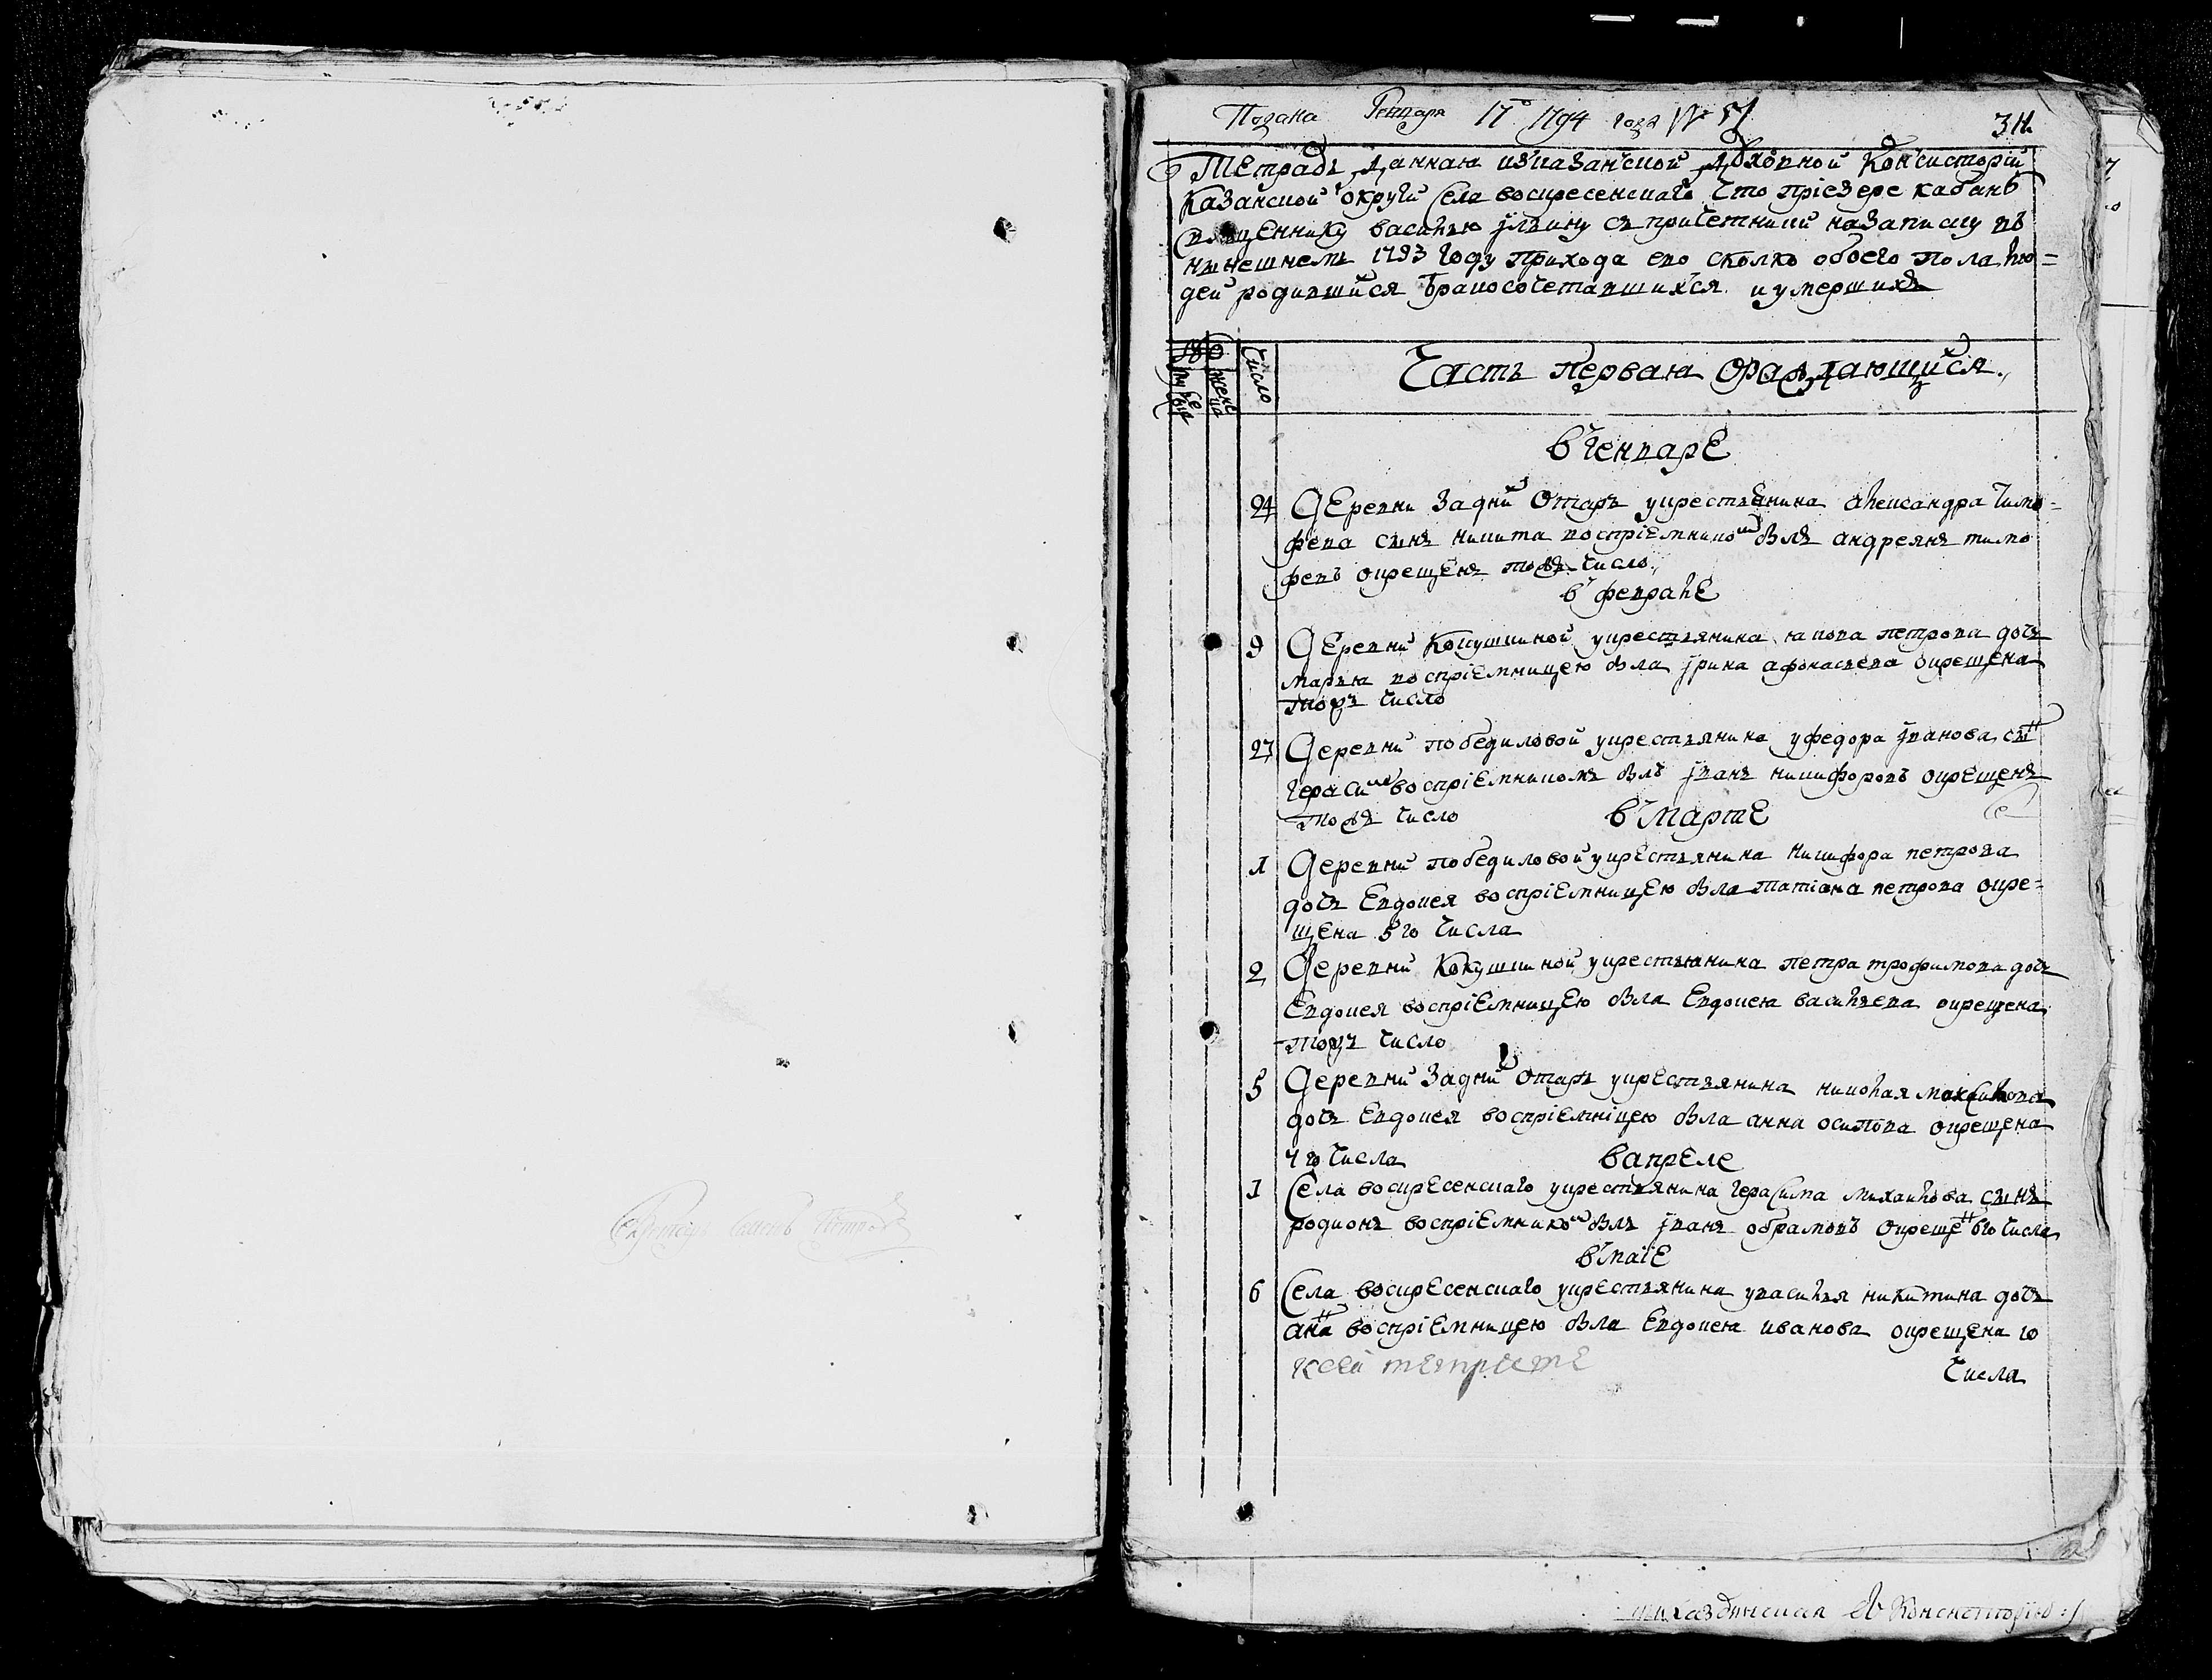 Подана Генваря 17º 1794 года № 57
311.
Тетрадь данная изказанской духовной Консисторіи
Казанской округи Села воскресенскаго что приезере кабанѣ
Священнику василью ильину съ причетникиназаписку въ
нынешнемъ 1793 году прихода ево сколко обоего пола лю=
дей родившихся бракосочетавшихся и умершихъ
Число
Часть первая орождающихся.
в генваре
24 Деревни Задних Отаръ укрестьянина александра тимо=
феева сынъ никита воспріемникомъ былъ андреянъ тимо
феевъ окрещенъ тогожъ число
в феврале
9 Деревни Кокушкиной укрестьянина якова петрова дочь
марья воспріемницею была ирина афонасьева окрещена
тожъ число
27 Деревни победиловой укрестьянина уфедора иванова сынъ
герасимъ воспріемникомъ былъ иванъ никифоровъ окрещенъ
тожъ число в марте
1 Деревни победиловой укрестьянина никифора петрова
дочь Евдокея воспріемницею была татіана петрова окре=
щена 5го числа
2 Деревни Кокушкиной укрестьянина петра трофимова дочь
Евдокея воспріемницею была Евдокея васильева окрещена
тожъ число
5 Деревни Задних Отаръ укрестьянина николая максимова
дочь Евдокея воспріемніцею была анна осипова окрещена
7го числа вапреле
1 Села воскресенскаго укрестьянина герасима михаилова сынъ
родионъ воспріемникомъ былъ иванъ обрамовъ окрещенъ 6го числа
в маіе
6 Села воскресенскаго укрестьянина увасилья никитина дочь
анна воспріемницею была Евдокея иванова окрещена 10
Ксей тетрате
числа
въ Консисторію